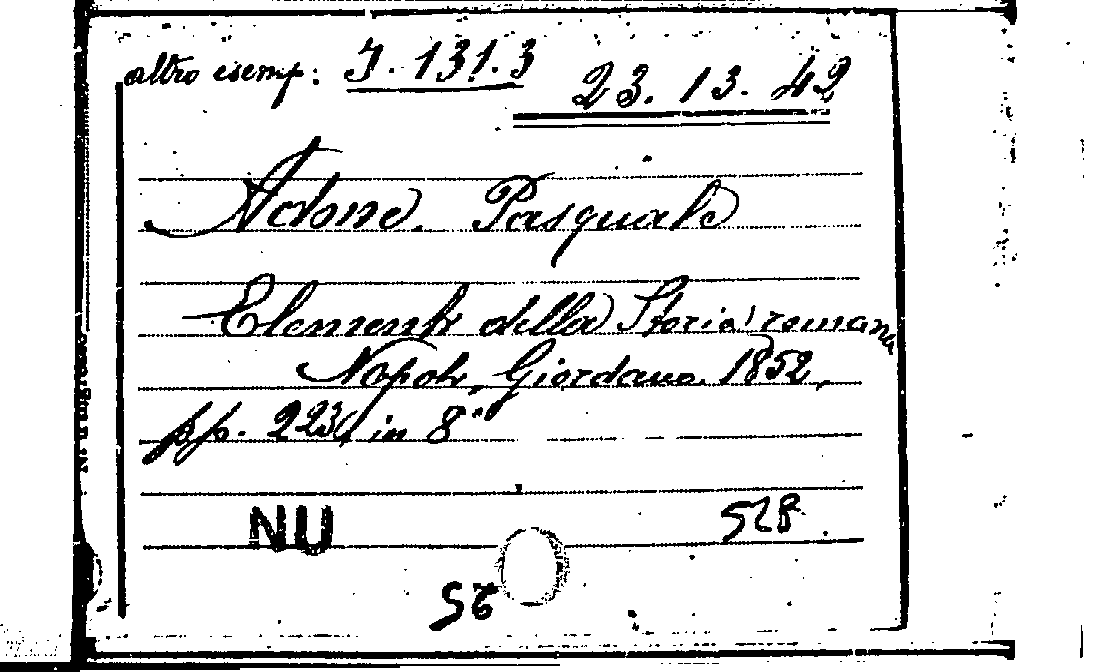 altro esemp: J. 131. 3
23. 13. 42
Adone. Pasquale
Elementi della Storia romana
Napoli, Giordano. 1852,
pp. 223, in 8°
NU
52B